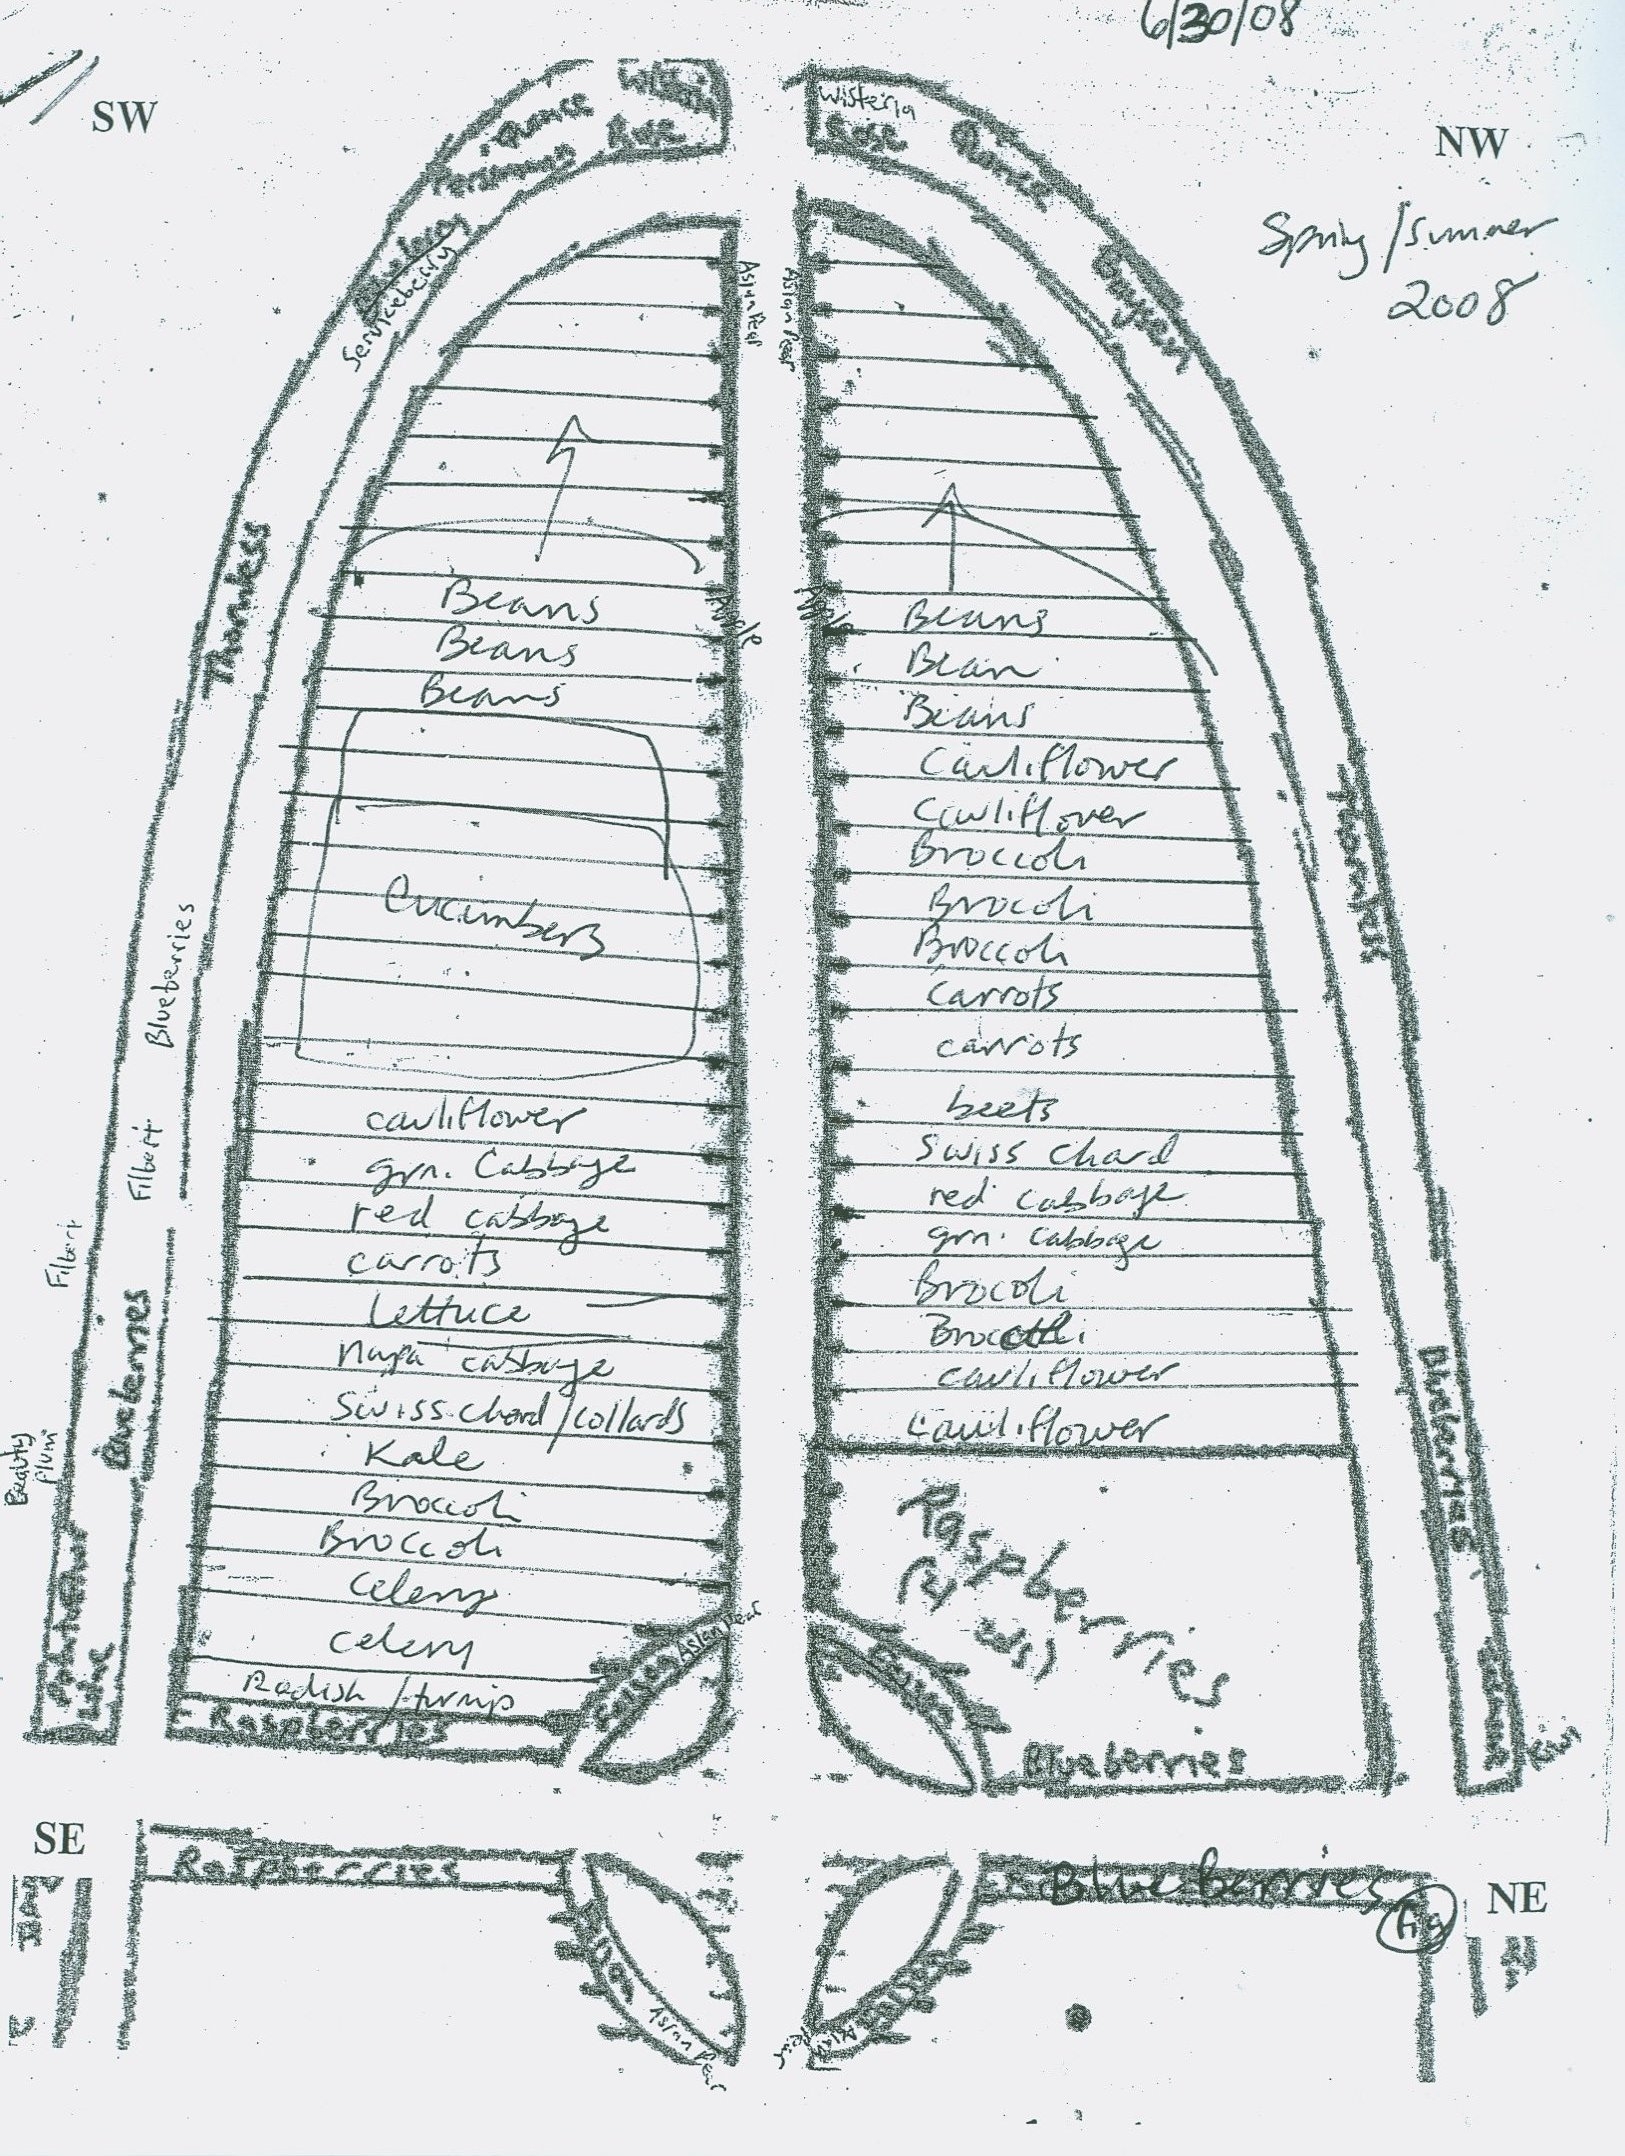 6/30/08
SW
NW
Spring / Summer
2008
Wisteria
Rose
Quince
Persimmon
Serviceberry
Thornless
Blueberries
Filbert
Filbert
Blueberries
Beauty
Plum
Wisteria
Rose
Quince
Thornless
Blueberries
Kiwi
Asian Pear
Asian Pear
Apple
Apple
Beans
Beans
Beans
Cucumbers
cauliflower
grn. Cabbage
red cabbage
carrots
Lettuce
napa cabbage
Swiss chard / collards
Kale
Broccoli
Broccoli
Celery
celery
Radish / turnip
Raspberries
Asian Pear
Beans
Bean
Beans
Cauliflower
Cauliflower
Broccoli
Brocoli
Broccoli
Carrots
carrots
beets
Swiss chard
red cabbage
grn. Cabbage
Brocoli
Broccoli
cauliflower
Cauliflower
Raspberries
Blueberries
SE
Raspberries
Asian Pear
Asian Pear
Blueberries
Fig
NE